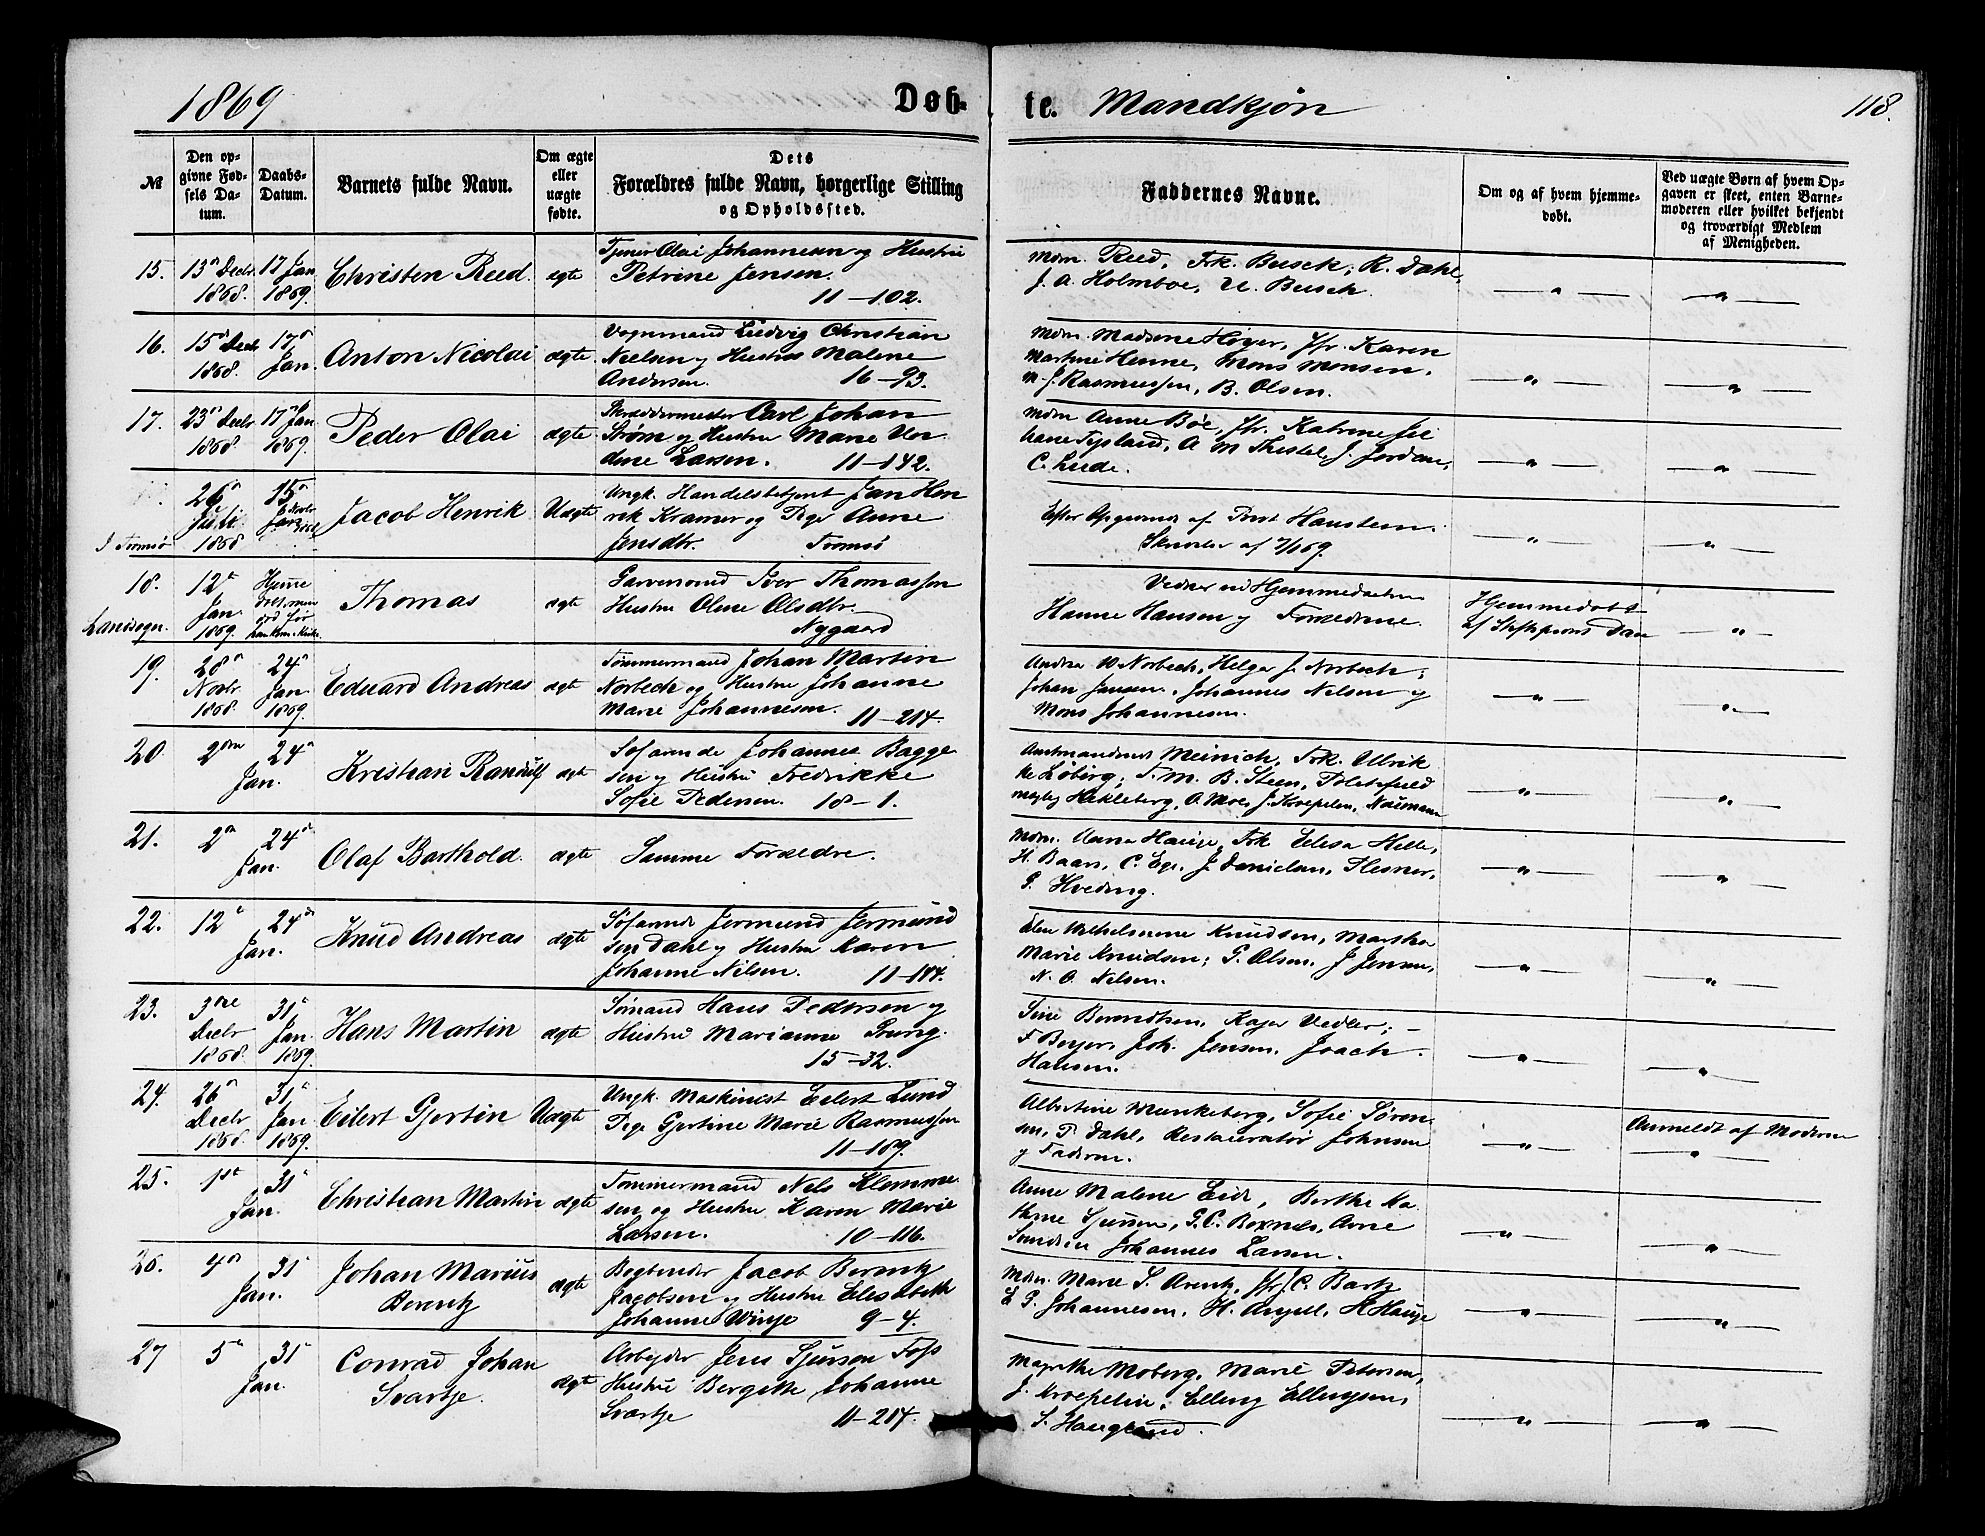 1869
Døb-
te. Mandkjøn
118.
№
Den op-
givne Fød-
sels Da-
tum.
Daabs-
Datum.
Barnets fulde Navn.
Om ægte
eller
uægte
fødte.
Dets
Forældres fulde Navn, borgerlige Stilling
og Opholdssted.
Faddernes Navne.
Om og af hvem hjemme-
døbt.
Ved uægte Børn af hvem Op-
gaven er skeet, enten Barne-
moderen eller hvilket bekjendt
og troværdigt Medlem
af Menigheden.
15.
13 Decbr
1868.
17 Jan
1869.
Christen Reed.
egte
Tjener Olai Johannesen og Hustru
Petrine Jensen.
11-102.
Mdm. Reed, Frk. Busch, R. Dahl,
J. A. Holmboe, U. Busch.
16.
15 Decbr
1868.
17
Jan.
Anton Nicolai
ægte
Vognmand Ludvig Christian
Nielsen og Hustru Malene
Andersen. 16-93.
Mdm. Madsene Høyer, Jfr. Karen
Martine Henne, Mons Monsen,
M. J. Rasmussen, B. Olsen.
17.
23 Decbr
1868.
17 Jan
1869.
Peder Olai
ægte
Skræddermester Carl Johan
Strøm og Hustru Marie Uer
dine Larsen. 11-142.
Mdm Anne Bøe, Jfr. Katrine
A M Thestel, J. Jordan,
C. Lude.
I Tromsø
26
Juli
1868
15
Jacob Henrik
Uægte
Ungk. Handelsbetjent Jan Hen
rik Kramer og Pige Anne
Jensdtr. Tromsø
Efter Opgivende af Prost Hanstein.
Skrivelse af 7/1 69.
18.
Landsogn.
12
Jan.
1869.
Hjemme
Thomas
ægte
Garversvend Iver Thomassen
Hustru Oline Olsdtr.
Nygaard
Vidner ved Hjemmedaaben
Hanne Hansen og Forældrene.
Hjemmedøbt
af Stiftsprovst Dan
19.
28
Novbr
1868.
24
Jan.
1869.
Eduard Andreas
ægte
Tømmermand Johan Martin
Norbech og Hustru Johanne
Marie Johannesen. 11-214.
Andrea W Norbech, Helger J. Norbech,
Johan Jansen, Johannes Nilsen og
Mons Johannesen.
20
2den
Jan.
24
Kristian Randulf
ægte
Søfarende Johannes Bagge
sen og Hustru Fredrikke
Sofie Pedersen. 18-1.
Amtmandinde Meinich, Frk. Ulrik
ke Løberg, T. M. B. Steen, Politifuld
mægtig Hekleberg, O. Moe, J. Kroepelien, Naumann
21.
2
Jan.
24
Olaf Barthold.
ægte
Samme Forældre.
Mdm. Anna Hauge, Frk Elisa Helle,
H. Baars, C. Ege, J. Danielsen, Flesner,
G. Hveding.
22.
12
Jan.
24
Knud Andreas
ægte
Søfarende Jermund Jermund
sen Dahl og Hustru Karen
Johanne Nilsen. 11-184.
Eline Wilhelmine Knudsen, Martha
Marie Knudsen, G. Olsen, J Jensen,
N. O. Nilsen.
23.
3die
Decbr
1868.
31
Jan.
1869.
Hans Martin
ægte
Sømand Hans Pedersen og
Hustru Marianne
15-32.
Sine Berendtsen, Kaja Vedler,
F Beyer, Joh. Jensen, Joach.
Hansen.
24.
26
Decbr
1868.
31
Jan
1869.
Eilert Gjertin
Uægte
Ungk. Maskinist Eilert Lund
Pige Gjertine Marie Rasmussen
11-189.
Albertine Munkeberg, Sofie Søren
sen, P. Dahl, Restauratør Johnsen
og Faderen.
Anmeldt af Moderen
25.
1ste
Jan.
31
Christian Martin
ægte
Tømmermand Nils Klemme
sen og Hustru Karen Marie
Larsen. 10-116.
Anne Malene Eide, Berthe Ka
thrine Sjursen, G. C. Boxnes, Arne
Johannes Larsen.
26.
4
Jan.
31
Johan Marius
Berentz
ægte
Bogbinder Jacob Berentz
Jacobsen og Hustru Elisabeth
Johanne Winje 9-4.
Mdm. Marie S. Arentz, Jfr. C. Bartz
E P. Johannesen, H. Angell, H Hauge
27
5
Jan.
31
Conrad Johan
Svartje.
ægte
Arbeider Jens Sjurson Foss
Hustru Bergitte Johanne
Svartje 11-214.
Magrethe Moberg, Marie Petersen,
J. Kroepelin, Elling Ellingsen,
S. Haugland.